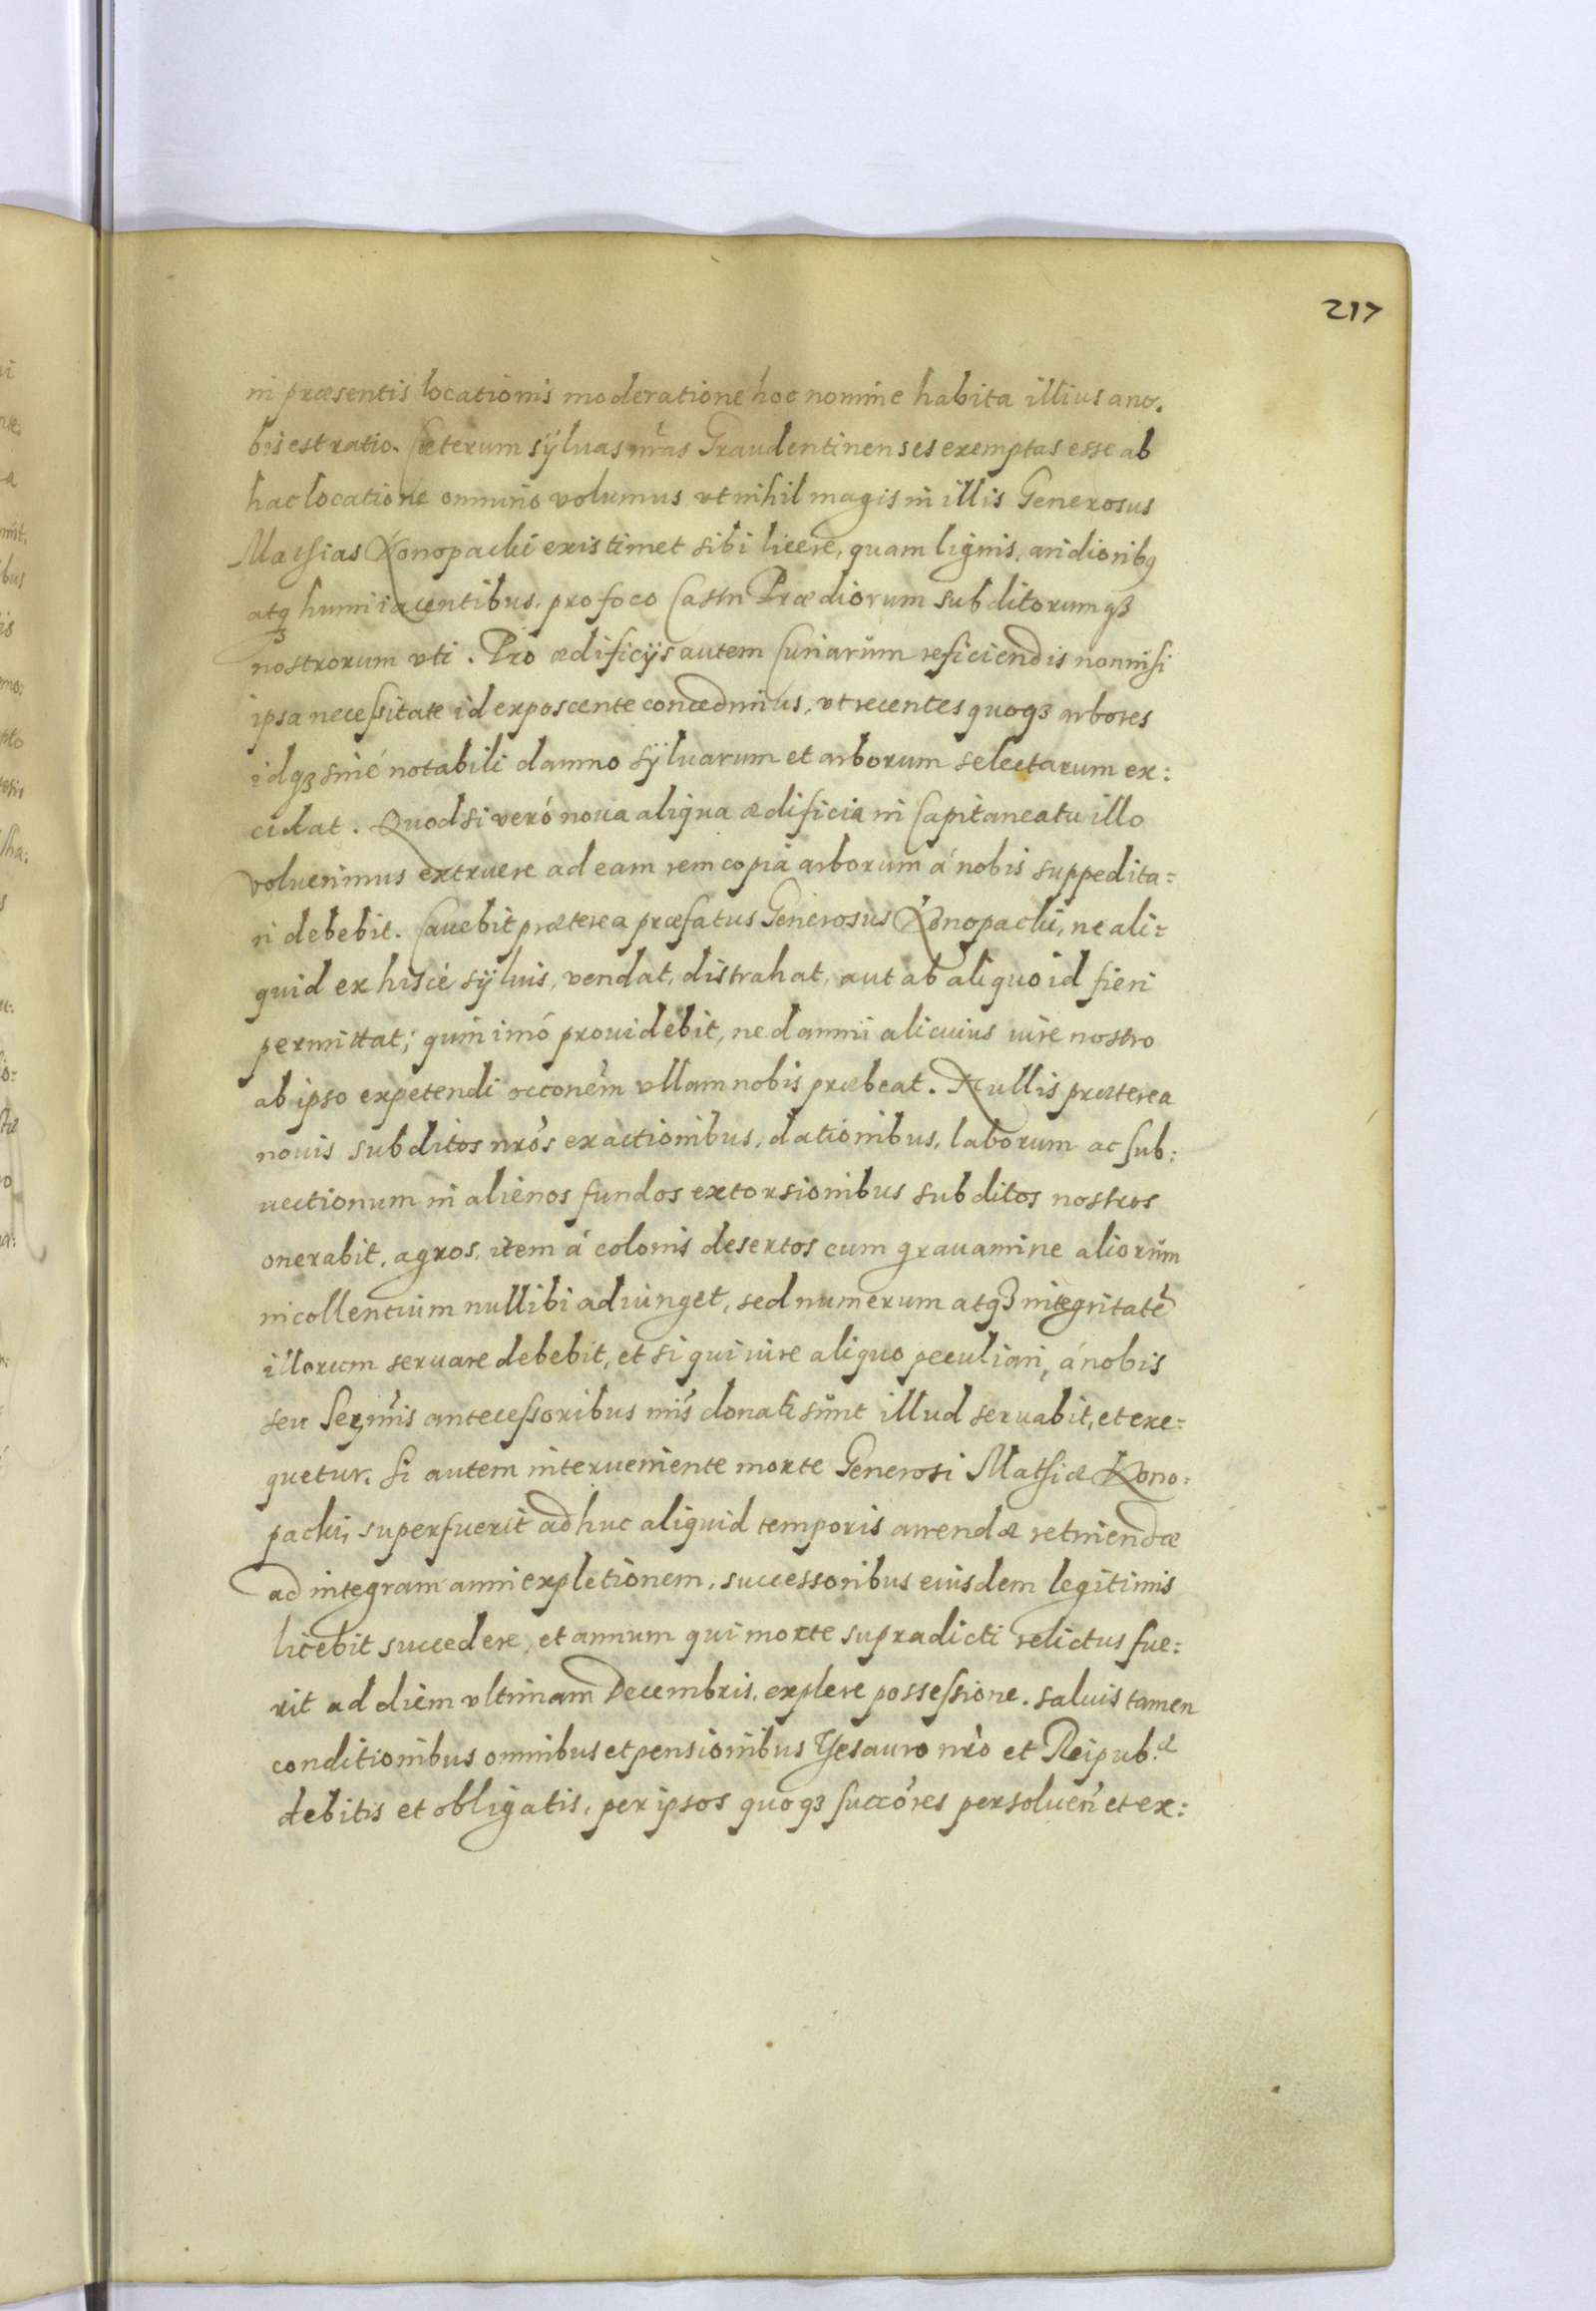 217
in præsentis locationis moderatione hoc nomine habita illius a no.
bis est ratio. Cæterum sÿluas nr̃as Graudentinenses exemptas esse ab
hac locatione omnino volumus vt nihil magis in illis Generosus
Mathias Konopacki existimet sibi licere, quam lignis, aridioribq
atqꝫ humi iacentibus, pro foco Castri Prædiorum subditorumqꝫ
nostrorum vti. Pro ædificijs autem Curiarŭm reficiendis nonnisi
ipsa necessitate id exposcente concedimus, vt recentes quoqꝫ arbores
idqꝫ sine notabili damno sÿluarum et arborum selectarum ex:
cidat. Quod si veró noua aliqua ædificia in Capitaneatu illo
voluerimus extruere ad eam rem copia arborum á nobis suppedita=
ri debebit. Cauebit præterea præfatus Generosus Konopacki, ne ali=
quid ex hisce sÿluis, vendat, distrahat, aut ab aliquo id fieri
permittat; quin imó prouidebit, ne damni alicuius iure nostro
ab ipso expetendi occoñem vllam nobis præbeat. Nullis præterea
nouis subditos nr̃os exactionibus, dationibus, laborum ac sub:
uectionum in alienos fundos extorsionibus subditos nostros
onerabit, agros, item á colonis desertos cum grauamine aliorŭm
incollentium nullibi adiunget, sed numerum atqꝫ integritatẽ
illorum seruare debebit, et si qui iure aliquo peculiari, á nobis
seu Serm̃is antecessoribus nr̃is donati sŭnt illud seruabit, et exe=
quetur. Si autem interueniente morte Generosi Mathiæ Kono=
packi, superfuerit adhuc aliquid temporis arrendæ retinendæ
ad integram anni expletionem, successoribus eiusdem legitimis
licebit succedere, et annum qui morte supradicti relictus fue:
rit ad diem vltimam Decembris, explere possessione. saluis tamen
conditionibus omnibus et pensionibus Thesauro nr̃o et Reipub.æ
debitis et obligatis, per ipsos quoqꝫ succõres persoluen̄ et ex: